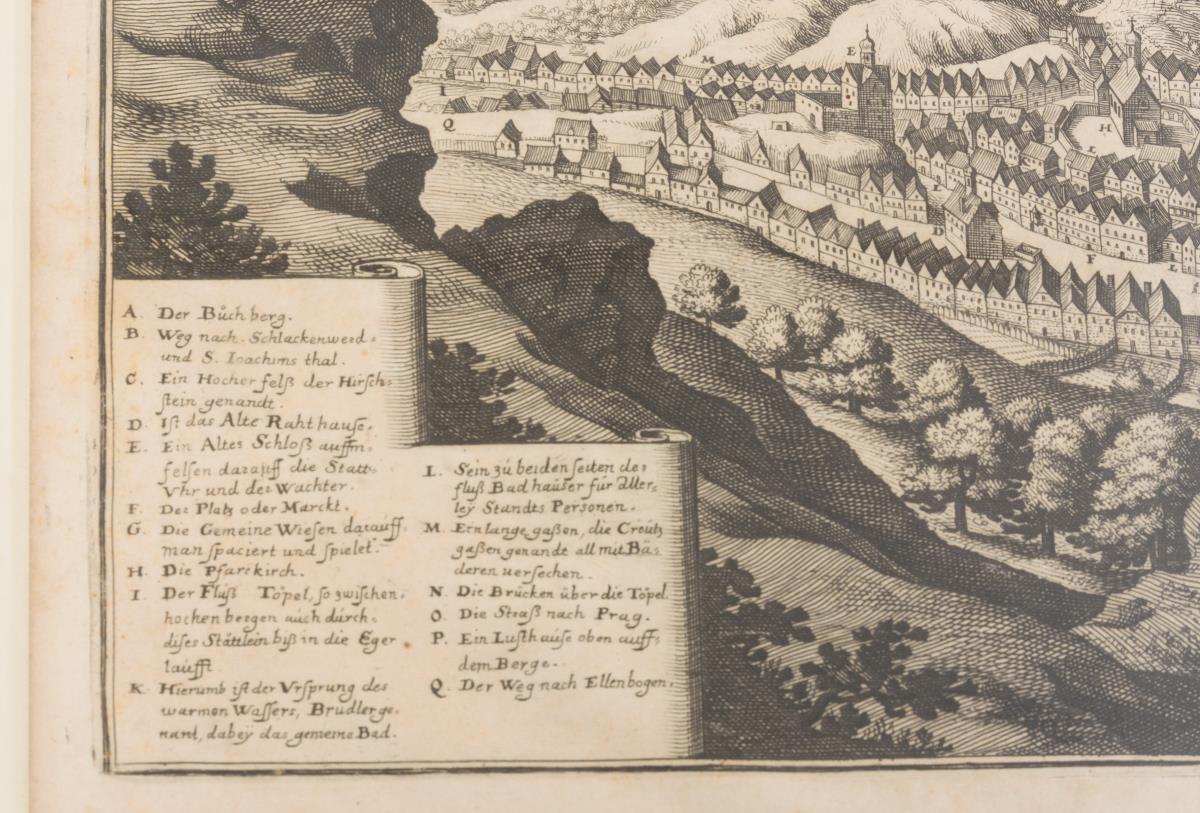 M
E
I
Q
H
L
F
L
A. Der Bůch berg.
B. Weg nach Schlackenwerd=
und S. Ioachims thal.
C. Ein Hocher felß der Hirsch=
stein genandt.
D. Ist das Alte Rahthause.
E. Ein Altes Schloß auffm
felsen darauff die Statt
Vhr und der Wachter.
F. Der Platz oder Marckt.
G. Die Gemeine Wiesen darauff
man spaciert und spielet.
H. Die Pfarrkirch.
I. Der Fluß Töpel, so zwischen
hochen bergen auch durch
dises Stättlein biß in die Eger
laufft
K. Hierumb ist der Vrsprung des
warmen Wassers, Brudler ge=
nant, dabeÿ das gemeine Bad.
L. Sein zů beiden seiten des
fluß Bad haüser für aller=
ley Standts Personen.
M. Ein lange gaßen, die Creutz
gaßen genandt all mit Bä=
deren versechen.
N. Die Brücken über die Töpel.
O. Die Straß nach Prag.
P. Ein Lusthause oben auff
dem Berge.
Q. Der Weg nach Ellenbogen.